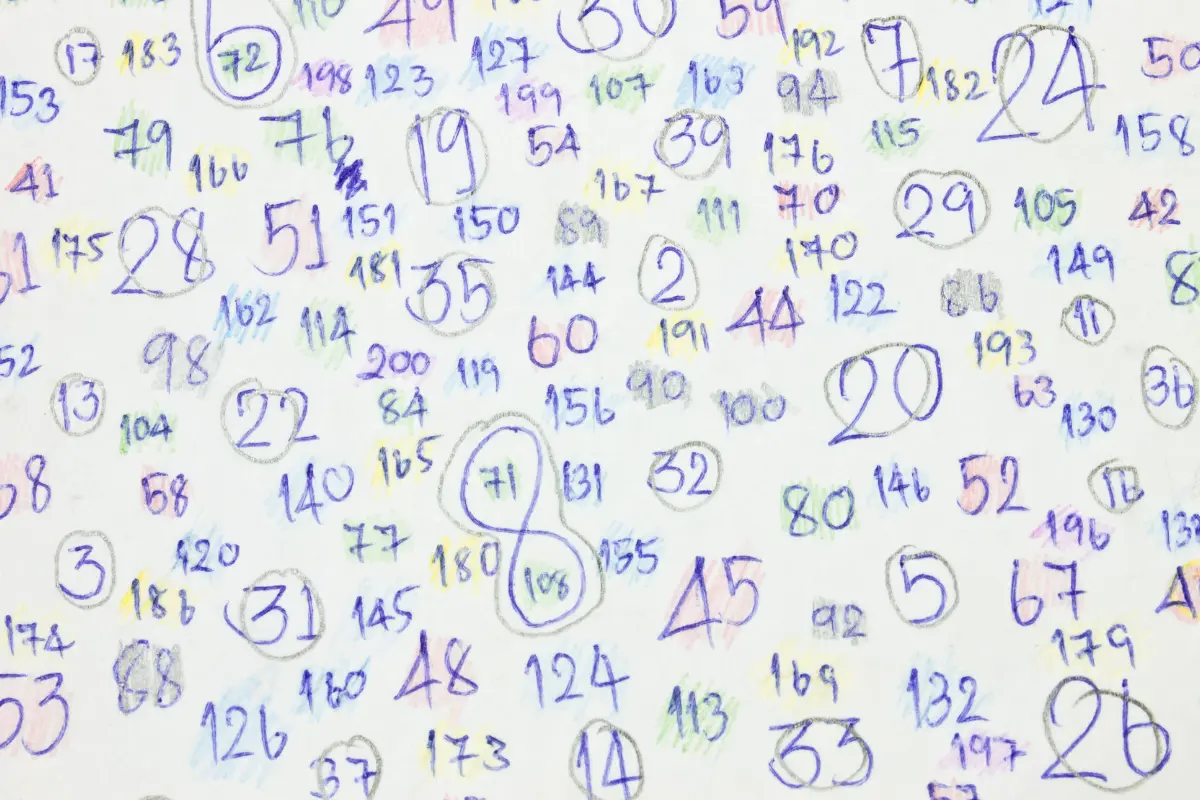 6 110 49 30 59
17 183 72 198 123 127 199 107 163 192 94 7 182 24 50
153 79 76 19 54 39 176 115 158
41 166 167 111 70 29 105 42
175 28 51 151 150 89 170 149
181 35 144 2 44 122 86 11
162 114 60 191 193
52 98 200 119 90 100 20 63 36
13 104 22 84 156 130
58 140 165 71 8 131 32 80 146 52 16
3 120 77 180 108 155 45 5 196
186 31 145 92 67
174 88 160 48 124 169 179
53 126 113 132 26
37 173 14 33 197
57